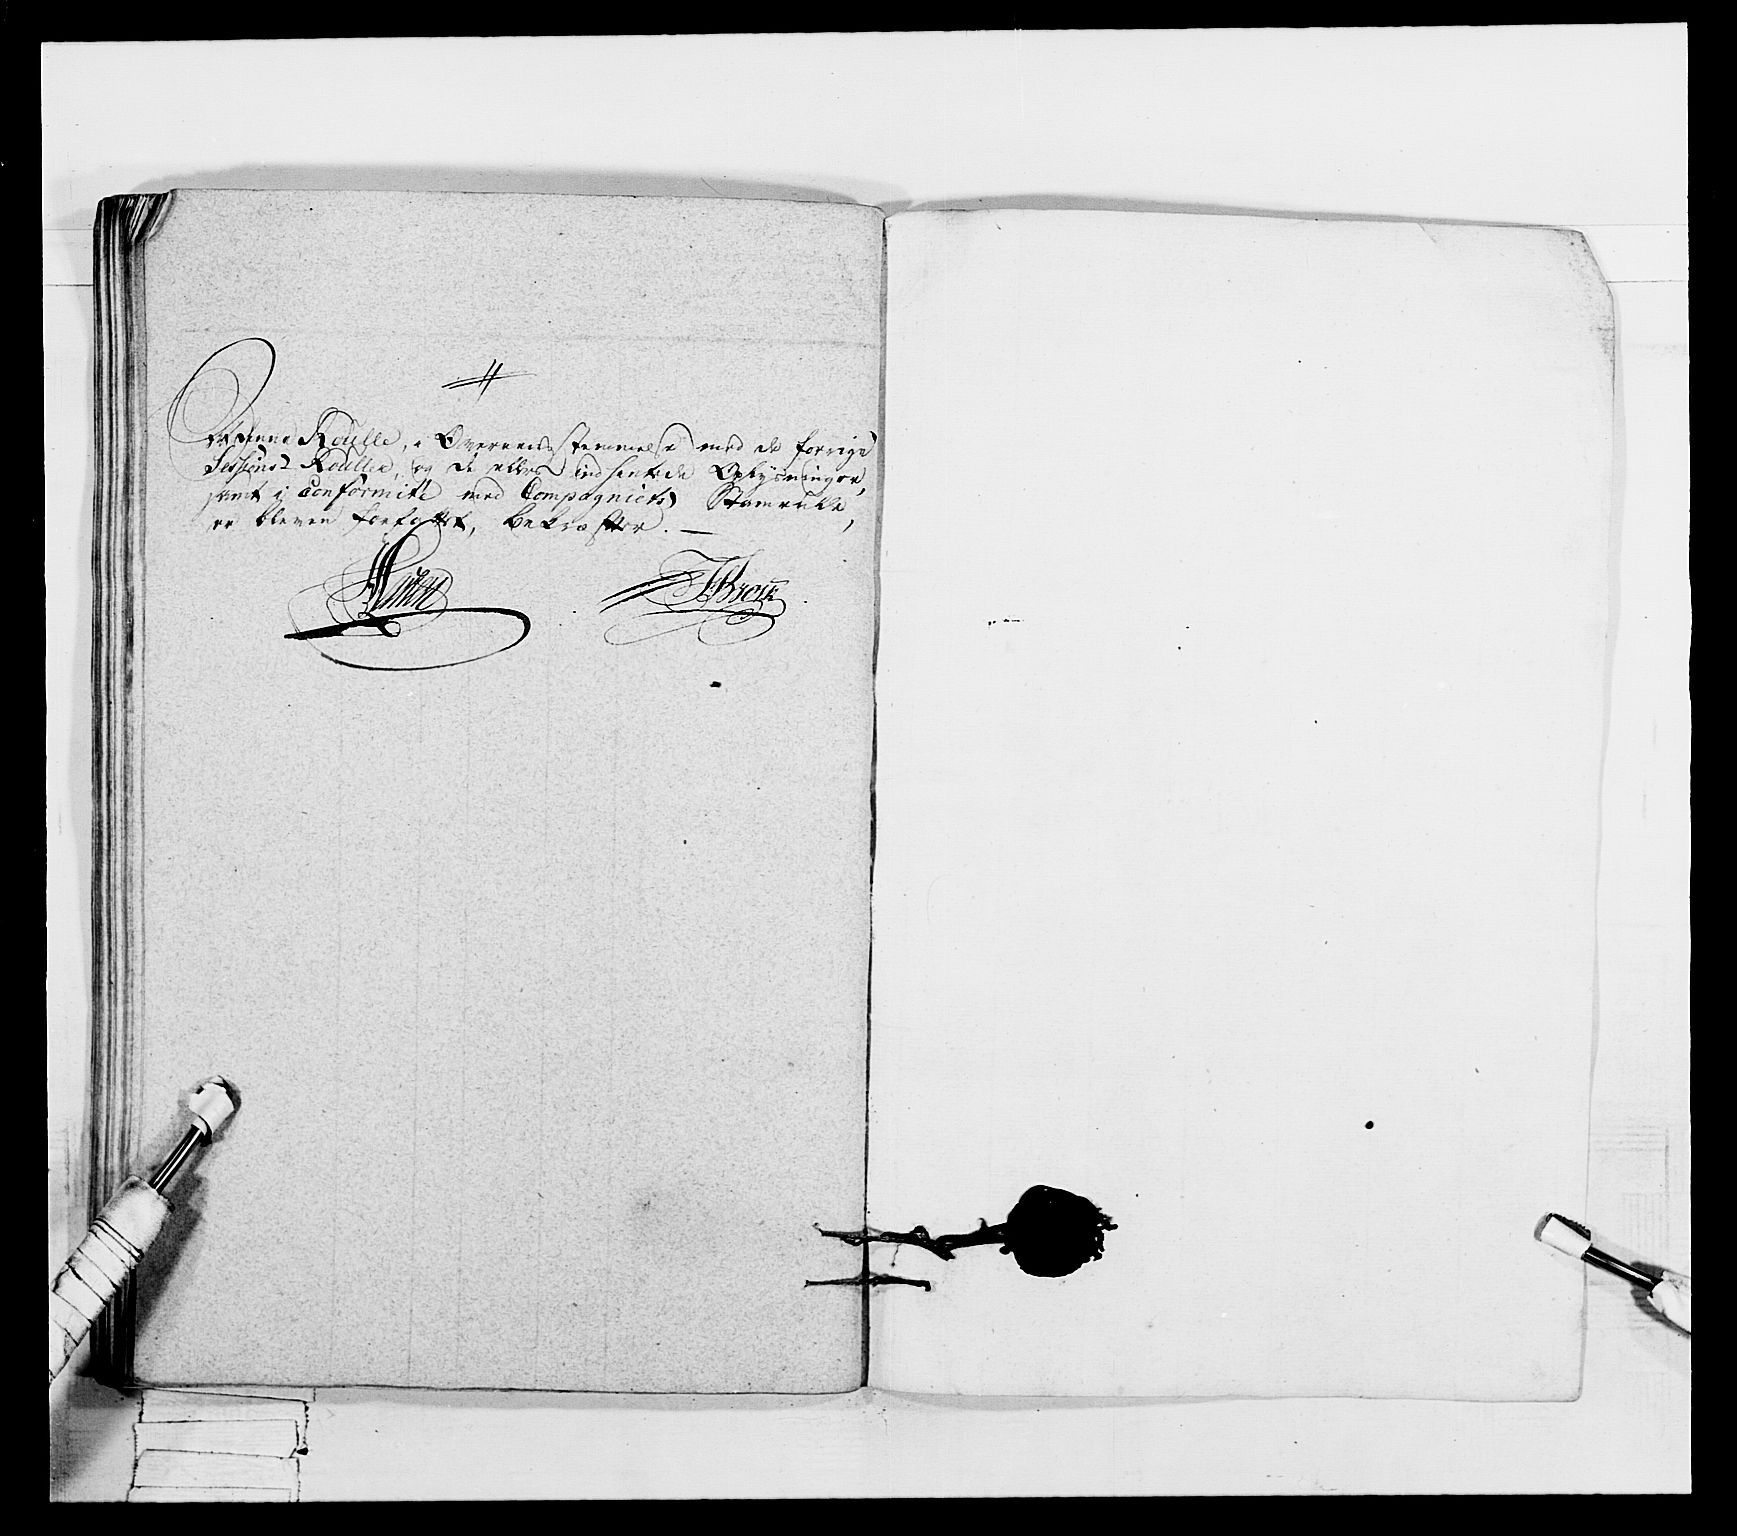 At denne Roulle, i Overeensstemmelse med de forrige
Sessions Rouller, og de ellers indsentede Oplysninger,
samt i conformite med Compagniets Stamrulle,
er bleven forfattet, bekræfter. —